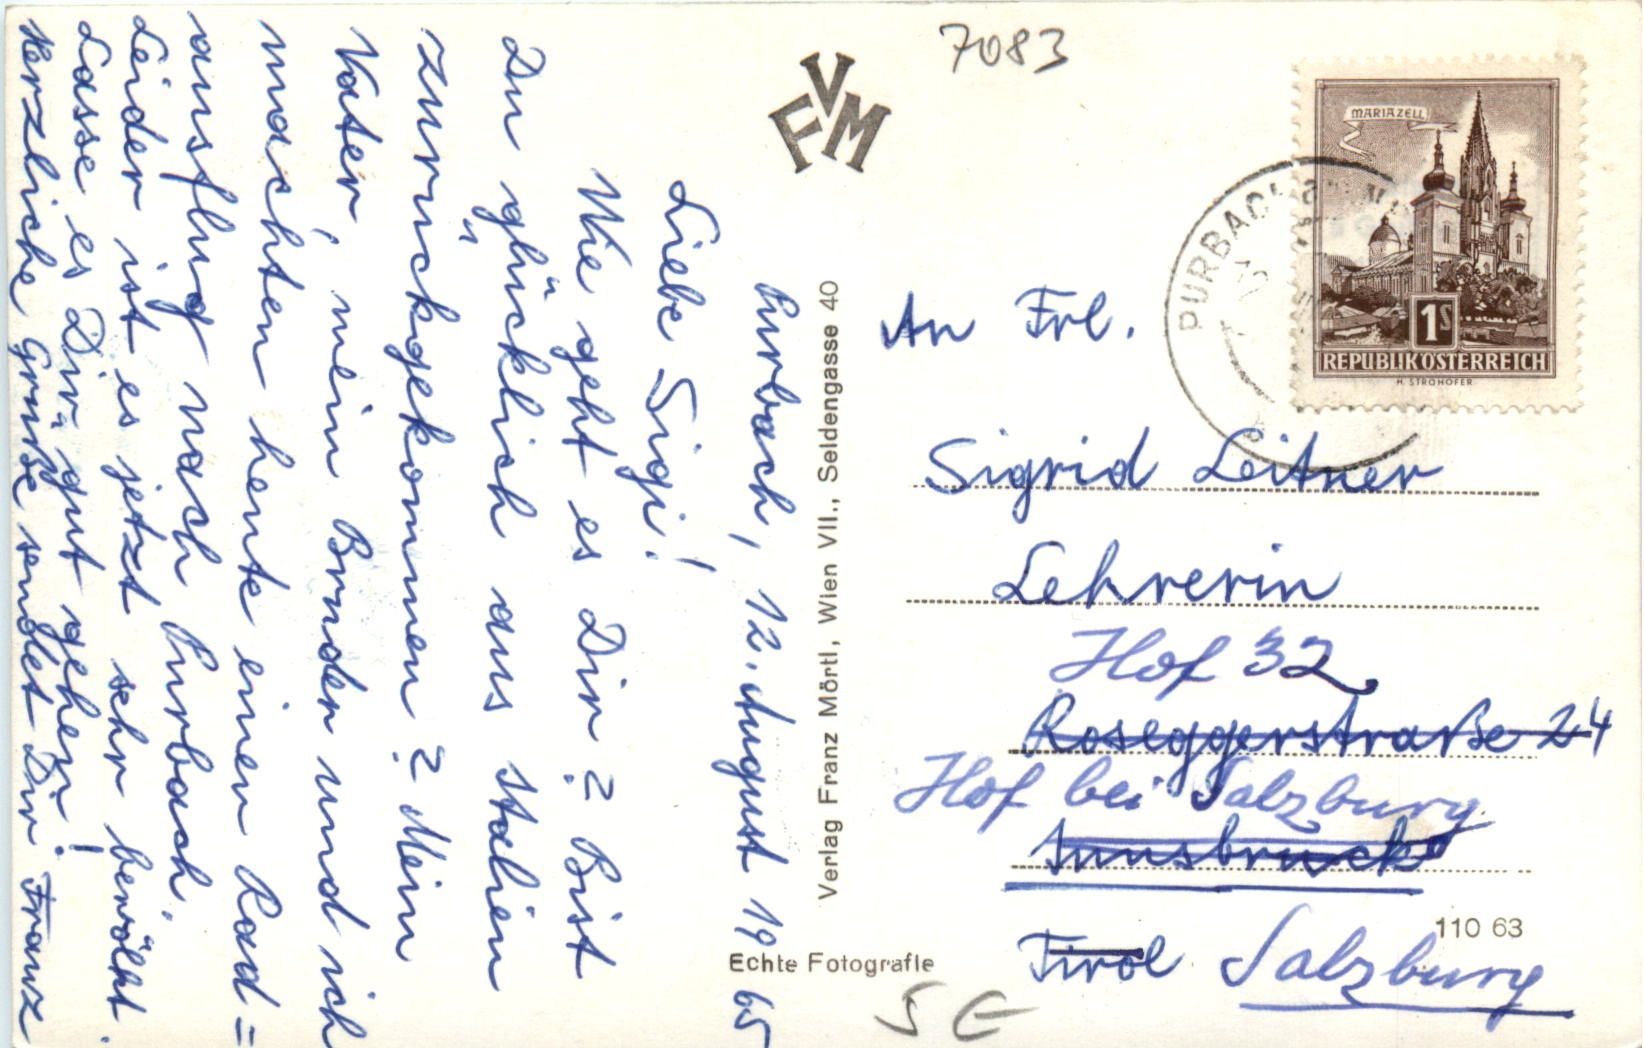 Purbach, 12. August 1965
Liebe Sigi!
Wie geht es Dir? Bist
Du glücklich aus Italien
zurückgekommen? Mein
Vater, mein Bruder und ich
machten heute einen Rad=
ausflug nach Purbach.
Leider ist es jetzt sehr bewölkt.
Lasse es Dir gut gehen!
Herzliche Grüße sendet Dir Franz
FVM
Verlag Franz Mörtl, Wien VII., Seidengasse 40
Echte Fotografie
7083
MARIAZELL
1S
REPUBLIK ÖSTERREICH
H. STROHOFER
PURBACH
An Frl.
Sigrid Leitner
Lehrerin
Hof 32
Roseggerstraße 24
Hof bei Salzburg
Innsbruck
110 63
Tirol Salzburg
SE